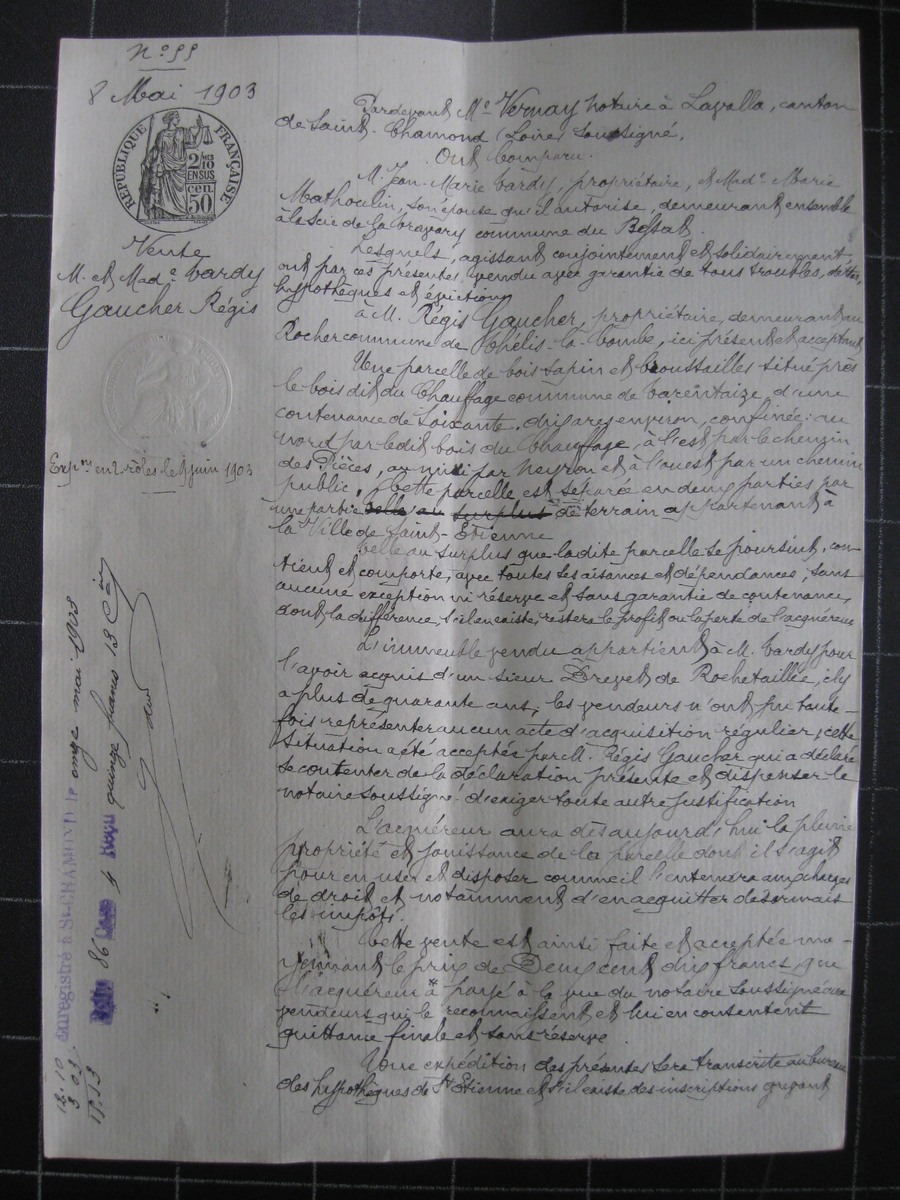 N° 99
8 Mai 1903
RÉPUBLIQUE FRANÇAISE
2/10
EN SUS
50 cen
Vente
M. et Made Tardy
Gaucher Régis
Expon en 2 rôles le juin 1903
Enregistré à St-CHAMOND le onze mai 1903
quinze francs 13 c
12.10
3 03
15.13
Pardevant Me Vernay notaire à Lavalla, canton
de Saint-Chamond (Loire) soussigné,
Ont Comparu.
M. Jean-Marie Tardy, propriétaire, et Made Marie
Mathoulin, son épouse qu'il autorise, demeurant ensemble
à la Scie de la commune du Bessat.
Lesquels, agissant conjointement et solidairement,
ont par ces présentes, vendu avec garantie de tous troubles, dettes,
hypothèques et évictions
à M. Régis Gaucher, propriétaire, demeurant au
Rocher commune de Thélis-la-Combe, ici présent et acceptant
Une parcelle de bois sapin et broussailles situé près
le bois dit du Chauffage commune de Tarentaize, d'une
contenance de Soixante-dix ares environ, confinée: au
nord par ledit bois du Chauffage, à l'est par le chemin
des Pièces, au midi par Neyron et à l'ouest par un chemin
public. Cette parcelle est séparée en deux parties par
une partie telle au surplus de terrain appartenant à
la Ville de Saint-Etienne
Telle au surplus que ladite parcelle se poursuit, con-
tient et comporte, avec toutes ses aisances et dépendances, sans
aucune exception ni réserve et sans garantie de contenance,
dont la différence, s'il en existe, restera le profit ou la perte de l'acquéreur
L'immeuble vendu appartient à M. Tardy pour
l'avoir acquis d'un sieur Drevet de Rochetaillée, il y
a plus de quarante ans; les vendeurs n'ont pu toute-
fois représenter aucun acte d'acquisition régulier; cette
situation a été acceptée par M. Régis Gaucher qui a déclaré
se contenter de la déclaration présente et dispenser le
notaire soussigné d'exiger toute autre justification
L'acquéreur aura dès aujourd'hui la pleine
propriété et jouissance de la parcelle dont il s'agit
pour en user et disposer comme il l'entendra aux charges
de droit et notamment d'en acquitter désormais
les impôts.
Cette vente est ainsi faite et acceptée mo-
yennant le prix de Deux cent dix francs, que
l'acquéreur a payé à la vue du notaire soussigné aux
vendeurs qui le reconnaissent et lui en consentent
quittance finale et sans réserve.
Une expédition des présentes sera transcrite au bureau
des hypothèques de St Etienne et s'il existe des inscriptions grevant